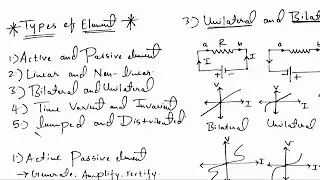 * Types of Element *
1) Active and Passive element
2) Linear and Non-linear
3.) Bilateral and Unilateral
4.) Time Varient and Invarient
5.) Lumped and Distributed
1) Active Passive element
→ Generate, Amplify, rectify.
3) Unilateral and Bilat
a R b
I I
a b
I
V I V I
Bilateral Unilateral
V I V I